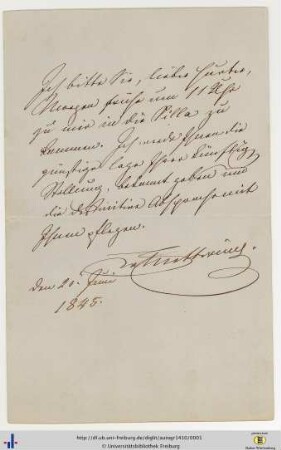 Ich bitte Sie, lieber Hurter,
Morgen frühe um 11 Uhr
zu mir in die Villa zu
kommen. Ich werde Ihnen die
günstige Lage Ihrer künftigen
Stellung, bekannt geben und
die definitive Absprache mit
Ihnen pflegen.
den 20. Juni
1845.
http://dl.ub.uni-freiburg.de/diglit/autogr1410/0001
© Universitätsbibliothek Freiburg